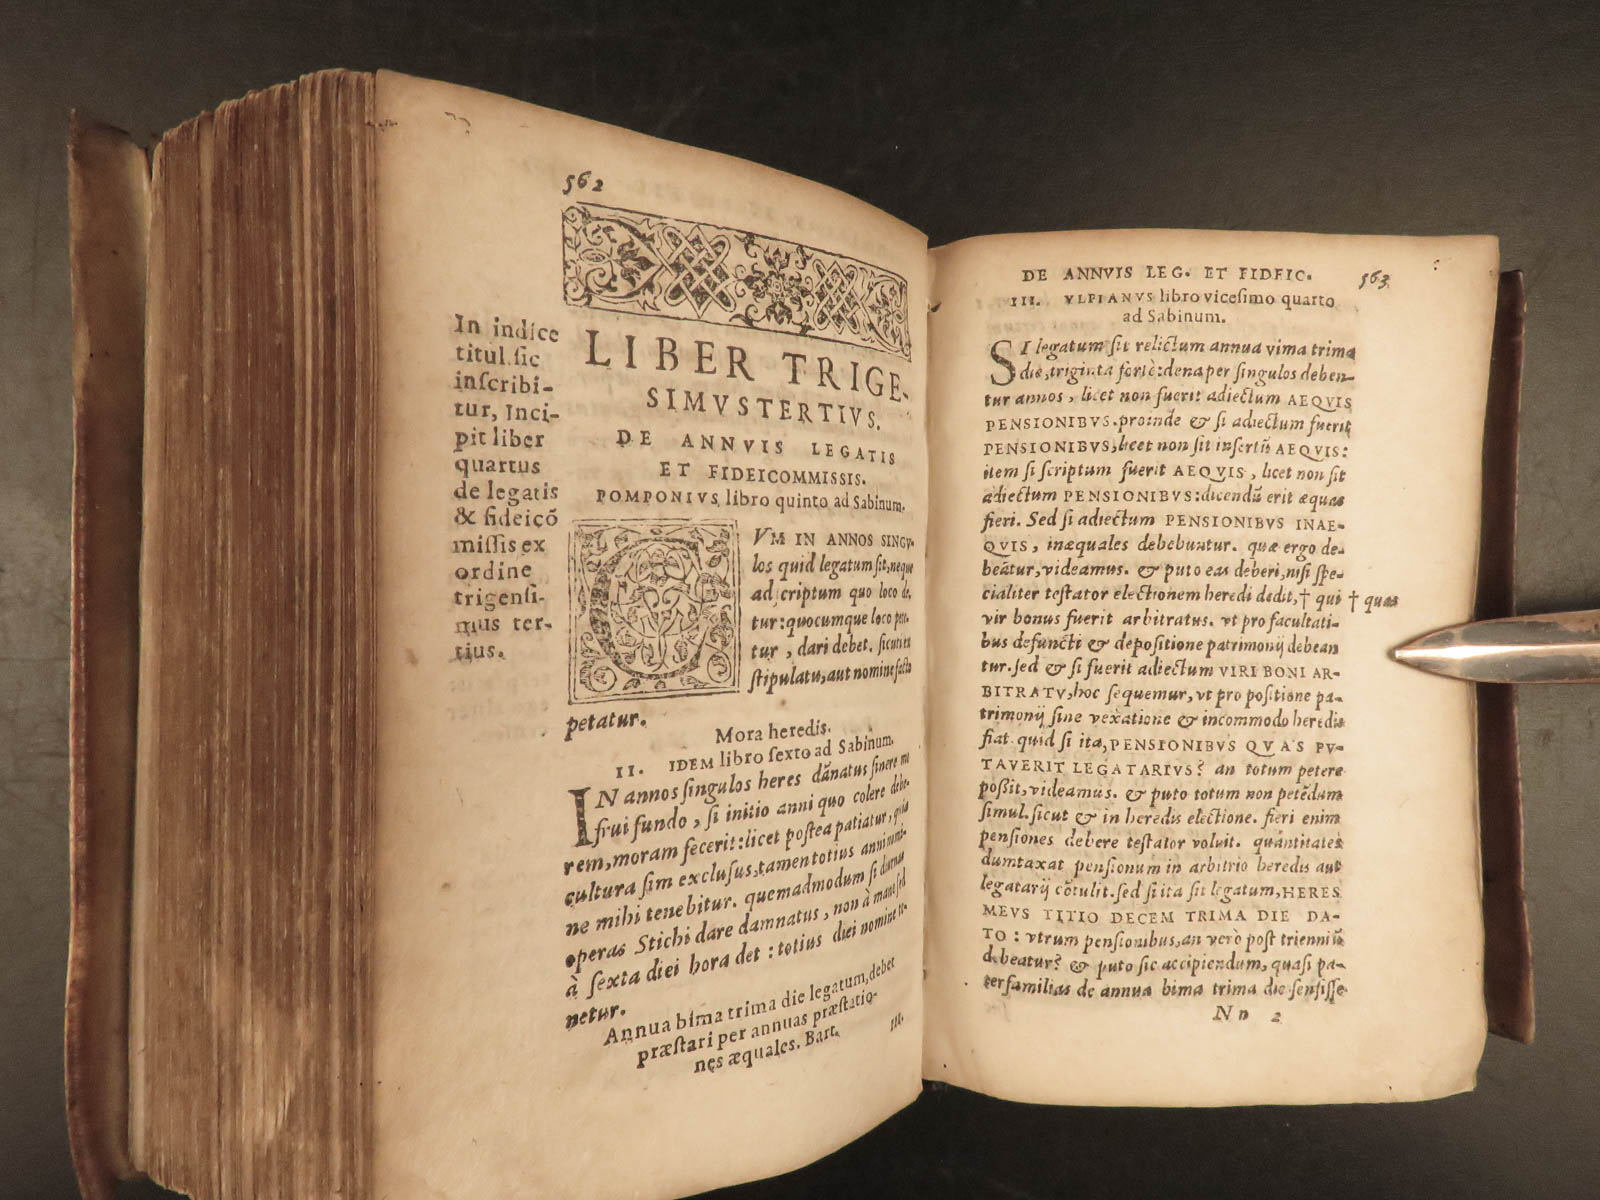 562
In indice
titul. ſic
inſcribi-
tur, Inci-
pit liber
quartus
de legatis
& fideicõ
miſſis ex
ordine
trigenſi-
mus ter-
tius.
LIBER TRIGE-
SIMVSTERTIVS.
DE ANNVIS LEGATIS
ET FIDEICOMMISSIS.
POMPONIVS libro quinto ad Sabinum.
CVM IN ANNOS SINGV-
los quid legatum ſit, neque
adſcriptum quo loco de-
tur: quocumque loco pete-
tur, dari debet. ſicuti ex
ſtipulatu, aut nomine facto
petatur.
Mora heredis.
II. IDEM libro ſexto ad Sabinum.
IN annos ſingulos heres dãnatus ſinere me
frui fundo, ſi initio anni quo colere debe-
rem, moram fecerit: licet poſtea patiatur, quia
cultura ſim excluſus, tamen totius anni nomi-
ne mihi tenebitur. quemadmodum ſi diurnas
operas Stichi dare damnatus, non à mane ſed
à ſexta diei hora det: totius diei nomine te-
netur.
Annua bima trima die legatum, debet
præſtari per annuas præſtatio-
nes æquales. Bart.
III.
DE ANNVIS LEG. ET FIDEIC. 563
III. VLPIANVS libro viceſimo quarto
ad Sabinum.
SI legatum ſit relictum annua vima trima
die, triginta fortè: dena per ſingulos deben-
tur annos, licet non fuerit adiectum AEQVIS
PENSIONIBVS. proinde & ſi adiectum fuerit
PENSIONIBVS, licet non ſit inſertũ AEQVIS:
item ſi ſcriptum fuerit AEQVIS, licet non ſit
adiectum PENSIONIBVS: dicendũ erit æquas
fieri. Sed ſi adiectum PENSIONIBVS INAE-
QVIS, inæquales debebuntur. quæ ergo de-
beãtur, videamus. & puto eas deberi, niſi ſpe-
cialiter teſtator electionem heredi dedit, † qui † quas
vir bonus fuerit arbitratus. vt pro facultati-
bus defuncti & depoſitione patrimonij debean
tur. ſed & ſi fuerit adiectum VIRI BONI AR-
BITRATV, hoc ſequemur, vt pro poſitione pa-
trimonij ſine vexatione & incommodo heredis
fiat. quid ſi ita, PENSIONIBVS QVAS PV-
TAVERIT LEGATARIVS? an totum petere
poßit, videamus. & puto totum non petẽdum
ſimul. ſicut & in heredis electione. fieri enim
penſiones debere teſtator voluit. quãntitates
dumtaxat penſionum in arbitrio heredis aut
legatarij cõtulit. ſed ſi ita ſit legatum, HERES
MEVS TITIO DECEM TRIMA DIE DA-
TO: vtrum penſionibus, an verò poſt trienniũ
debeatur? & puto ſic accipiendum, quaſi pa-
terfamilias de annua bima trima die ſenſiſſe
Nn 2